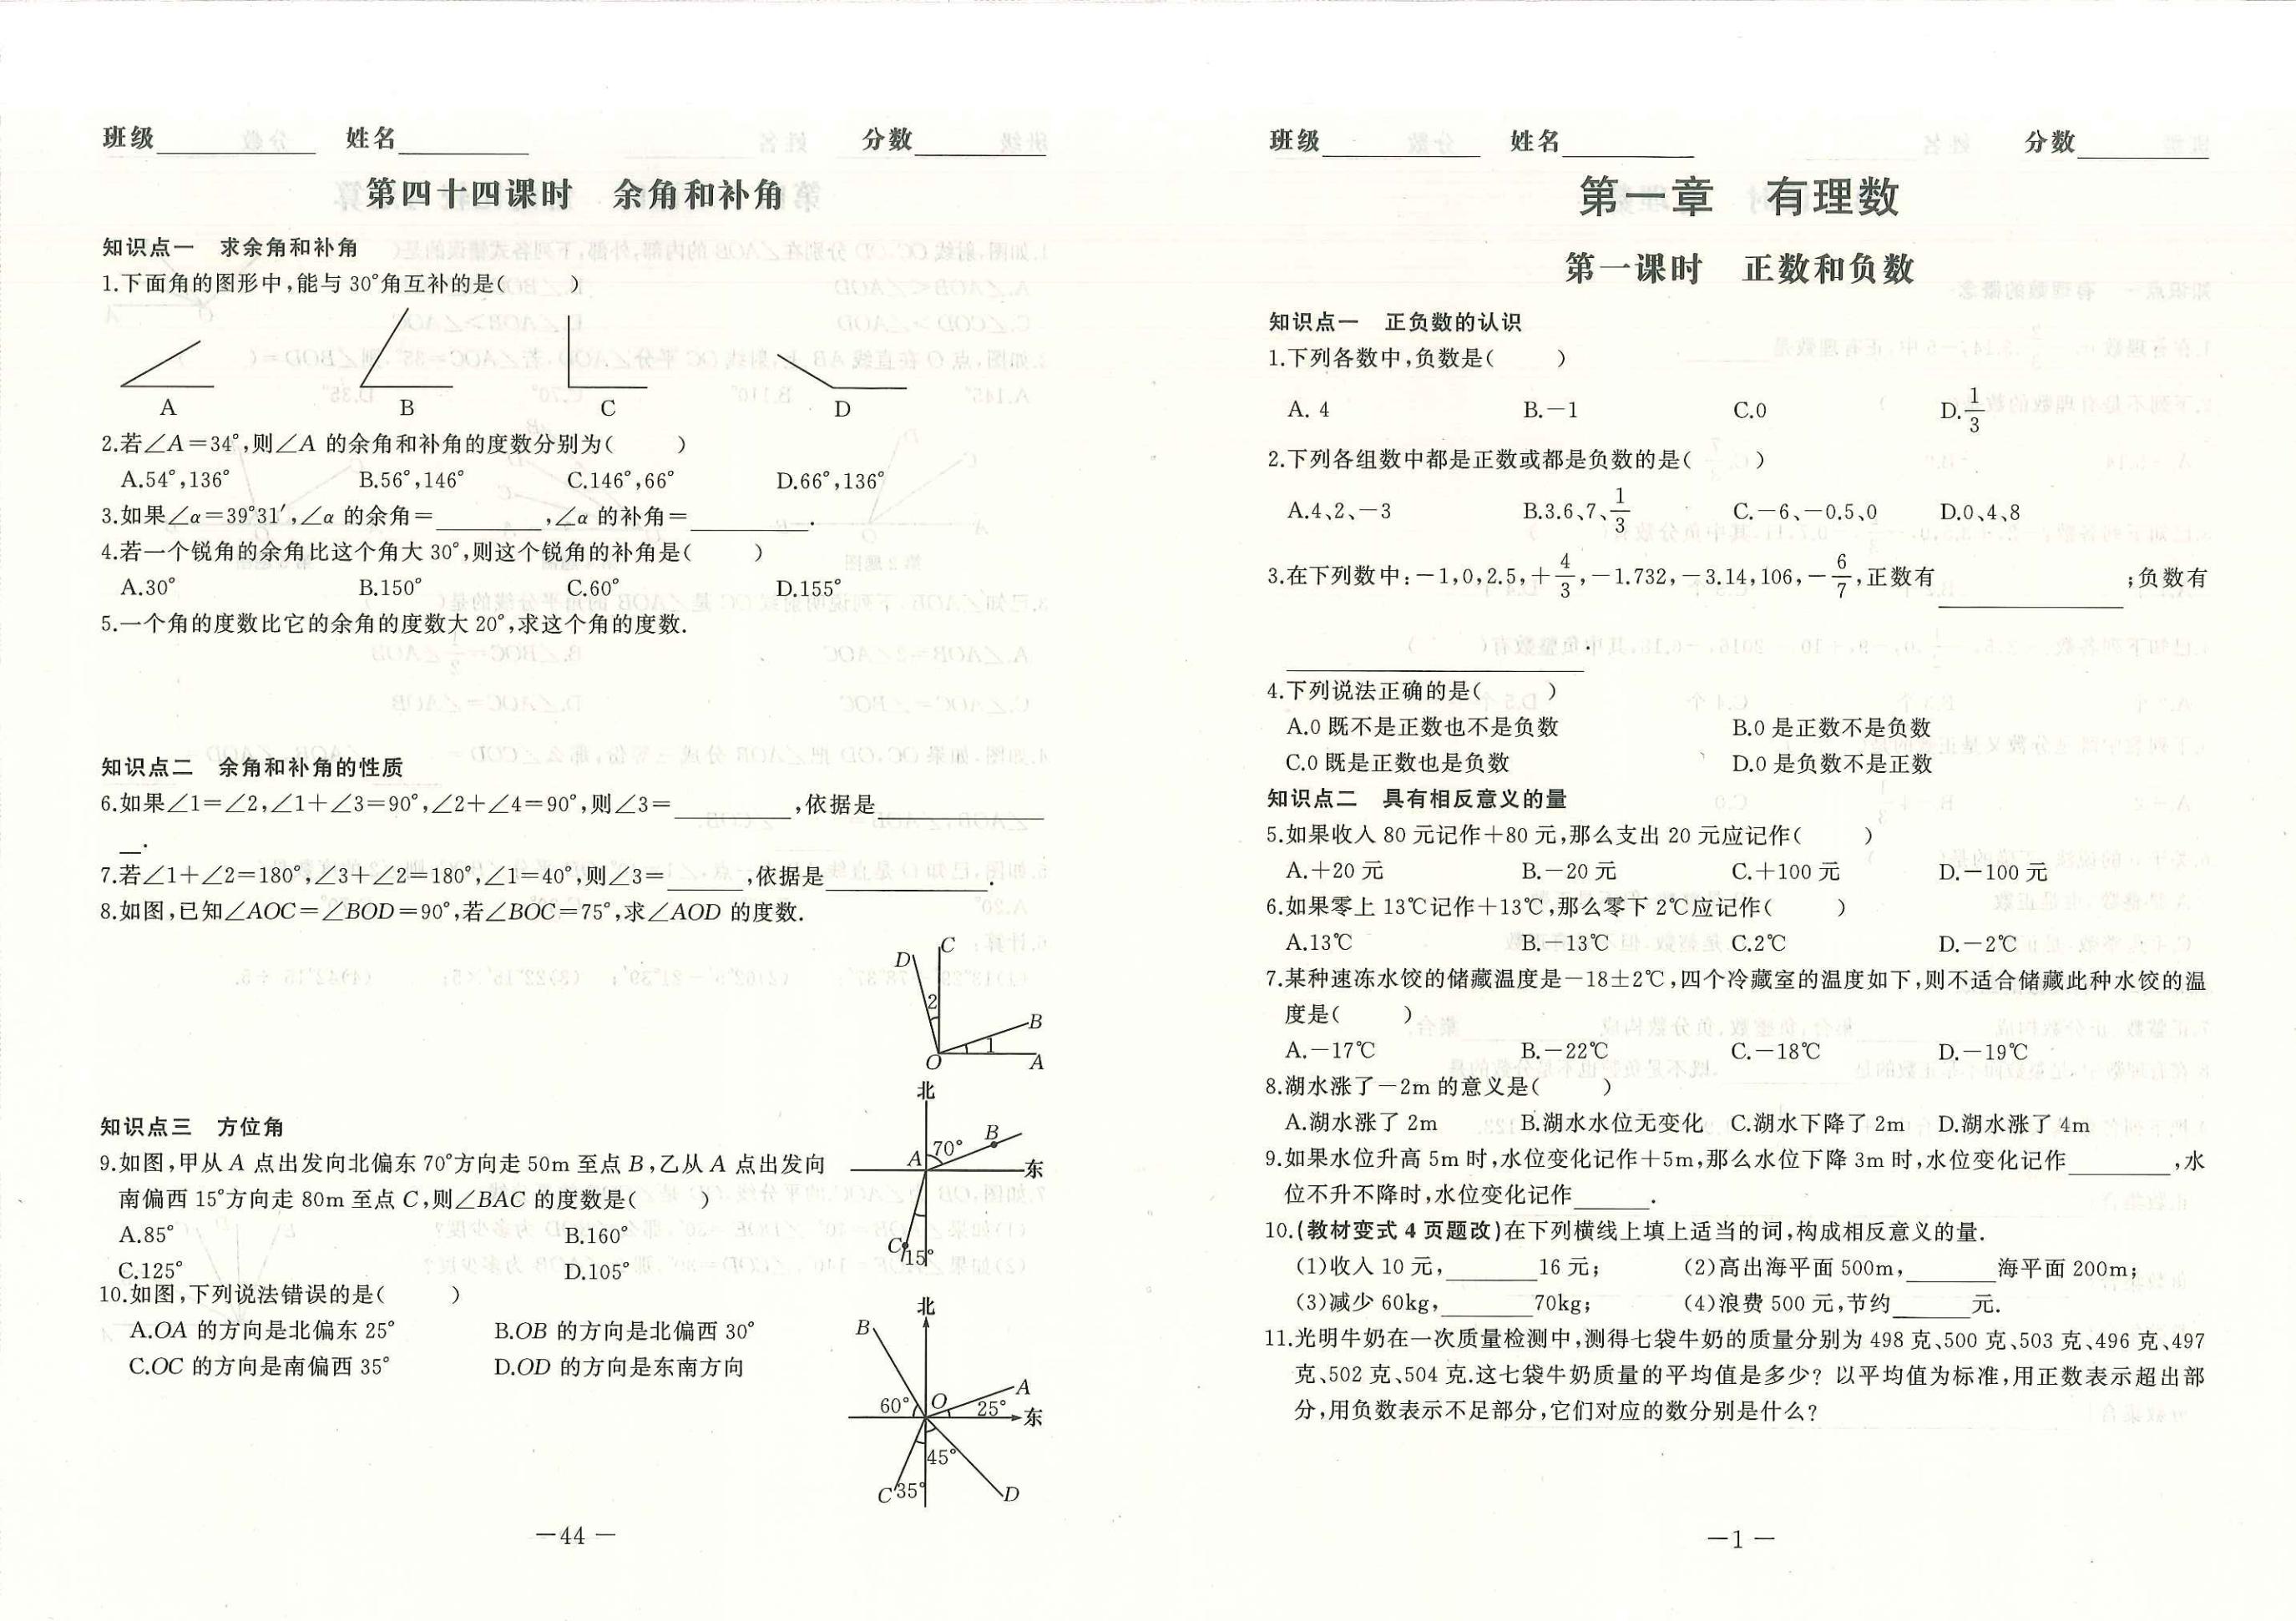 班级 姓名 分数
第四十四课时 余角和补角
知识点一 求余角和补角
1.下面角的图形中,能与30°角互补的是( )
A B C D
2.若∠A=34°,则∠A 的余角和补角的度数分别为( )
A.54°,136° B.56°,146° C.146°,66° D.66°,136°
3.如果∠α=39°31′,∠α 的余角=________,∠α 的补角=________.
4.若一个锐角的余角比这个角大30°,则这个锐角的补角是( )
A.30° B.150° C.60° D.155°
5.一个角的度数比它的余角的度数大20°,求这个角的度数.
知识点二 余角和补角的性质
6.如果∠1=∠2,∠1+∠3=90°,∠2+∠4=90°,则∠3=________,依据是________
__.
7.若∠1+∠2=180°,∠3+∠2=180°,∠1=40°,则∠3=______,依据是____________.
8.如图,已知∠AOC=∠BOD=90°,若∠BOC=75°,求∠AOD 的度数.
C
D
2
B
1
O A
知识点三 方位角
9.如图,甲从 A 点出发向北偏东70°方向走50m至点 B,乙从 A 点出发向
南偏西15°方向走80m至点 C,则∠BAC 的度数是( )
A.85° B.160°
C.125° D.105°
北
70° B
A 东
C 15°
10.如图,下列说法错误的是( )
A.OA 的方向是北偏东25° B.OB 的方向是北偏西30°
C.OC 的方向是南偏西35° D.OD 的方向是东南方向
北
B
A
60° O 25° 东
45°
C 35° D
—44—
班级 姓名 分数
第一章 有理数
第一课时 正数和负数
知识点一 正负数的认识
1.下列各数中,负数是( )
A. 4 B.−1 C.0 D.1/3
2.下列各组数中都是正数或都是负数的是( )
A.4、2、−3 B.3.6、7、1/3 C.−6、−0.5、0 D.0、4、8
3.在下列数中:−1,0,2.5,+4/3,−1.732,−3.14,106,−6/7,正数有____________;负数有
____________________.
4.下列说法正确的是( )
A.0既不是正数也不是负数 B.0是正数不是负数
C.0既是正数也是负数 D.0是负数不是正数
知识点二 具有相反意义的量
5.如果收入80元记作+80元,那么支出20元应记作( )
A.+20元 B.−20元 C.+100元 D.−100元
6.如果零上13℃记作+13℃,那么零下2℃应记作( )
A.13℃ B.−13℃ C.2℃ D.−2℃
7.某种速冻水饺的储藏温度是−18±2℃,四个冷藏室的温度如下,则不适合储藏此种水饺的温
度是( )
A.−17℃ B.−22℃ C.−18℃ D.−19℃
8.湖水涨了−2m的意义是( )
A.湖水涨了2m B.湖水水位无变化 C.湖水下降了2m D.湖水涨了4m
9.如果水位升高5m时,水位变化记作+5m,那么水位下降3m时,水位变化记作________,水
位不升不降时,水位变化记作______.
10.(教材变式4页题改)在下列横线上填上适当的词,构成相反意义的量.
(1)收入10元,_______16元; (2)高出海平面500m,_______海平面200m;
(3)减少60kg,_______70kg; (4)浪费500元,节约______元.
11.光明牛奶在一次质量检测中,测得七袋牛奶的质量分别为498克、500克、503克、496克、497
克、502克、504克.这七袋牛奶质量的平均值是多少? 以平均值为标准,用正数表示超出部
分,用负数表示不足部分,它们对应的数分别是什么?
—1—